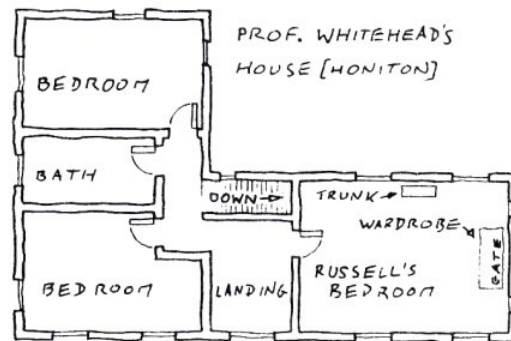 PROF. WHITEHEAD'S
HOUSE [HONITON]
BEDROOM
BATH
DOWN
TRUNK
WARDROBE
GATE
BEDROOM
LANDING
RUSSELL'S
BEDROOM